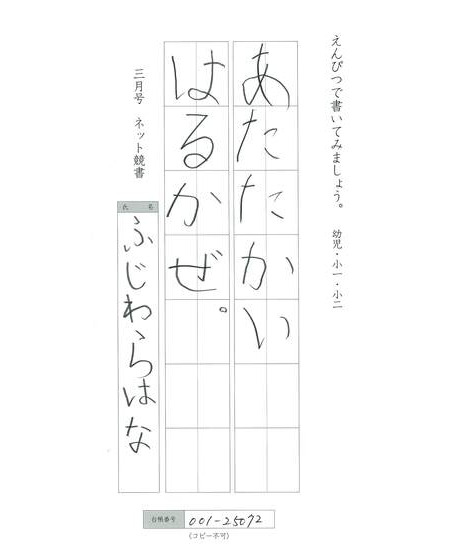 えんぴつで書いてみましょう。 幼児・小一・小二
あたたかい
はるかぜ。
三月号 ネット競書
氏名
ふじわらはな
台帳番号 001-25072
(コピー不可)